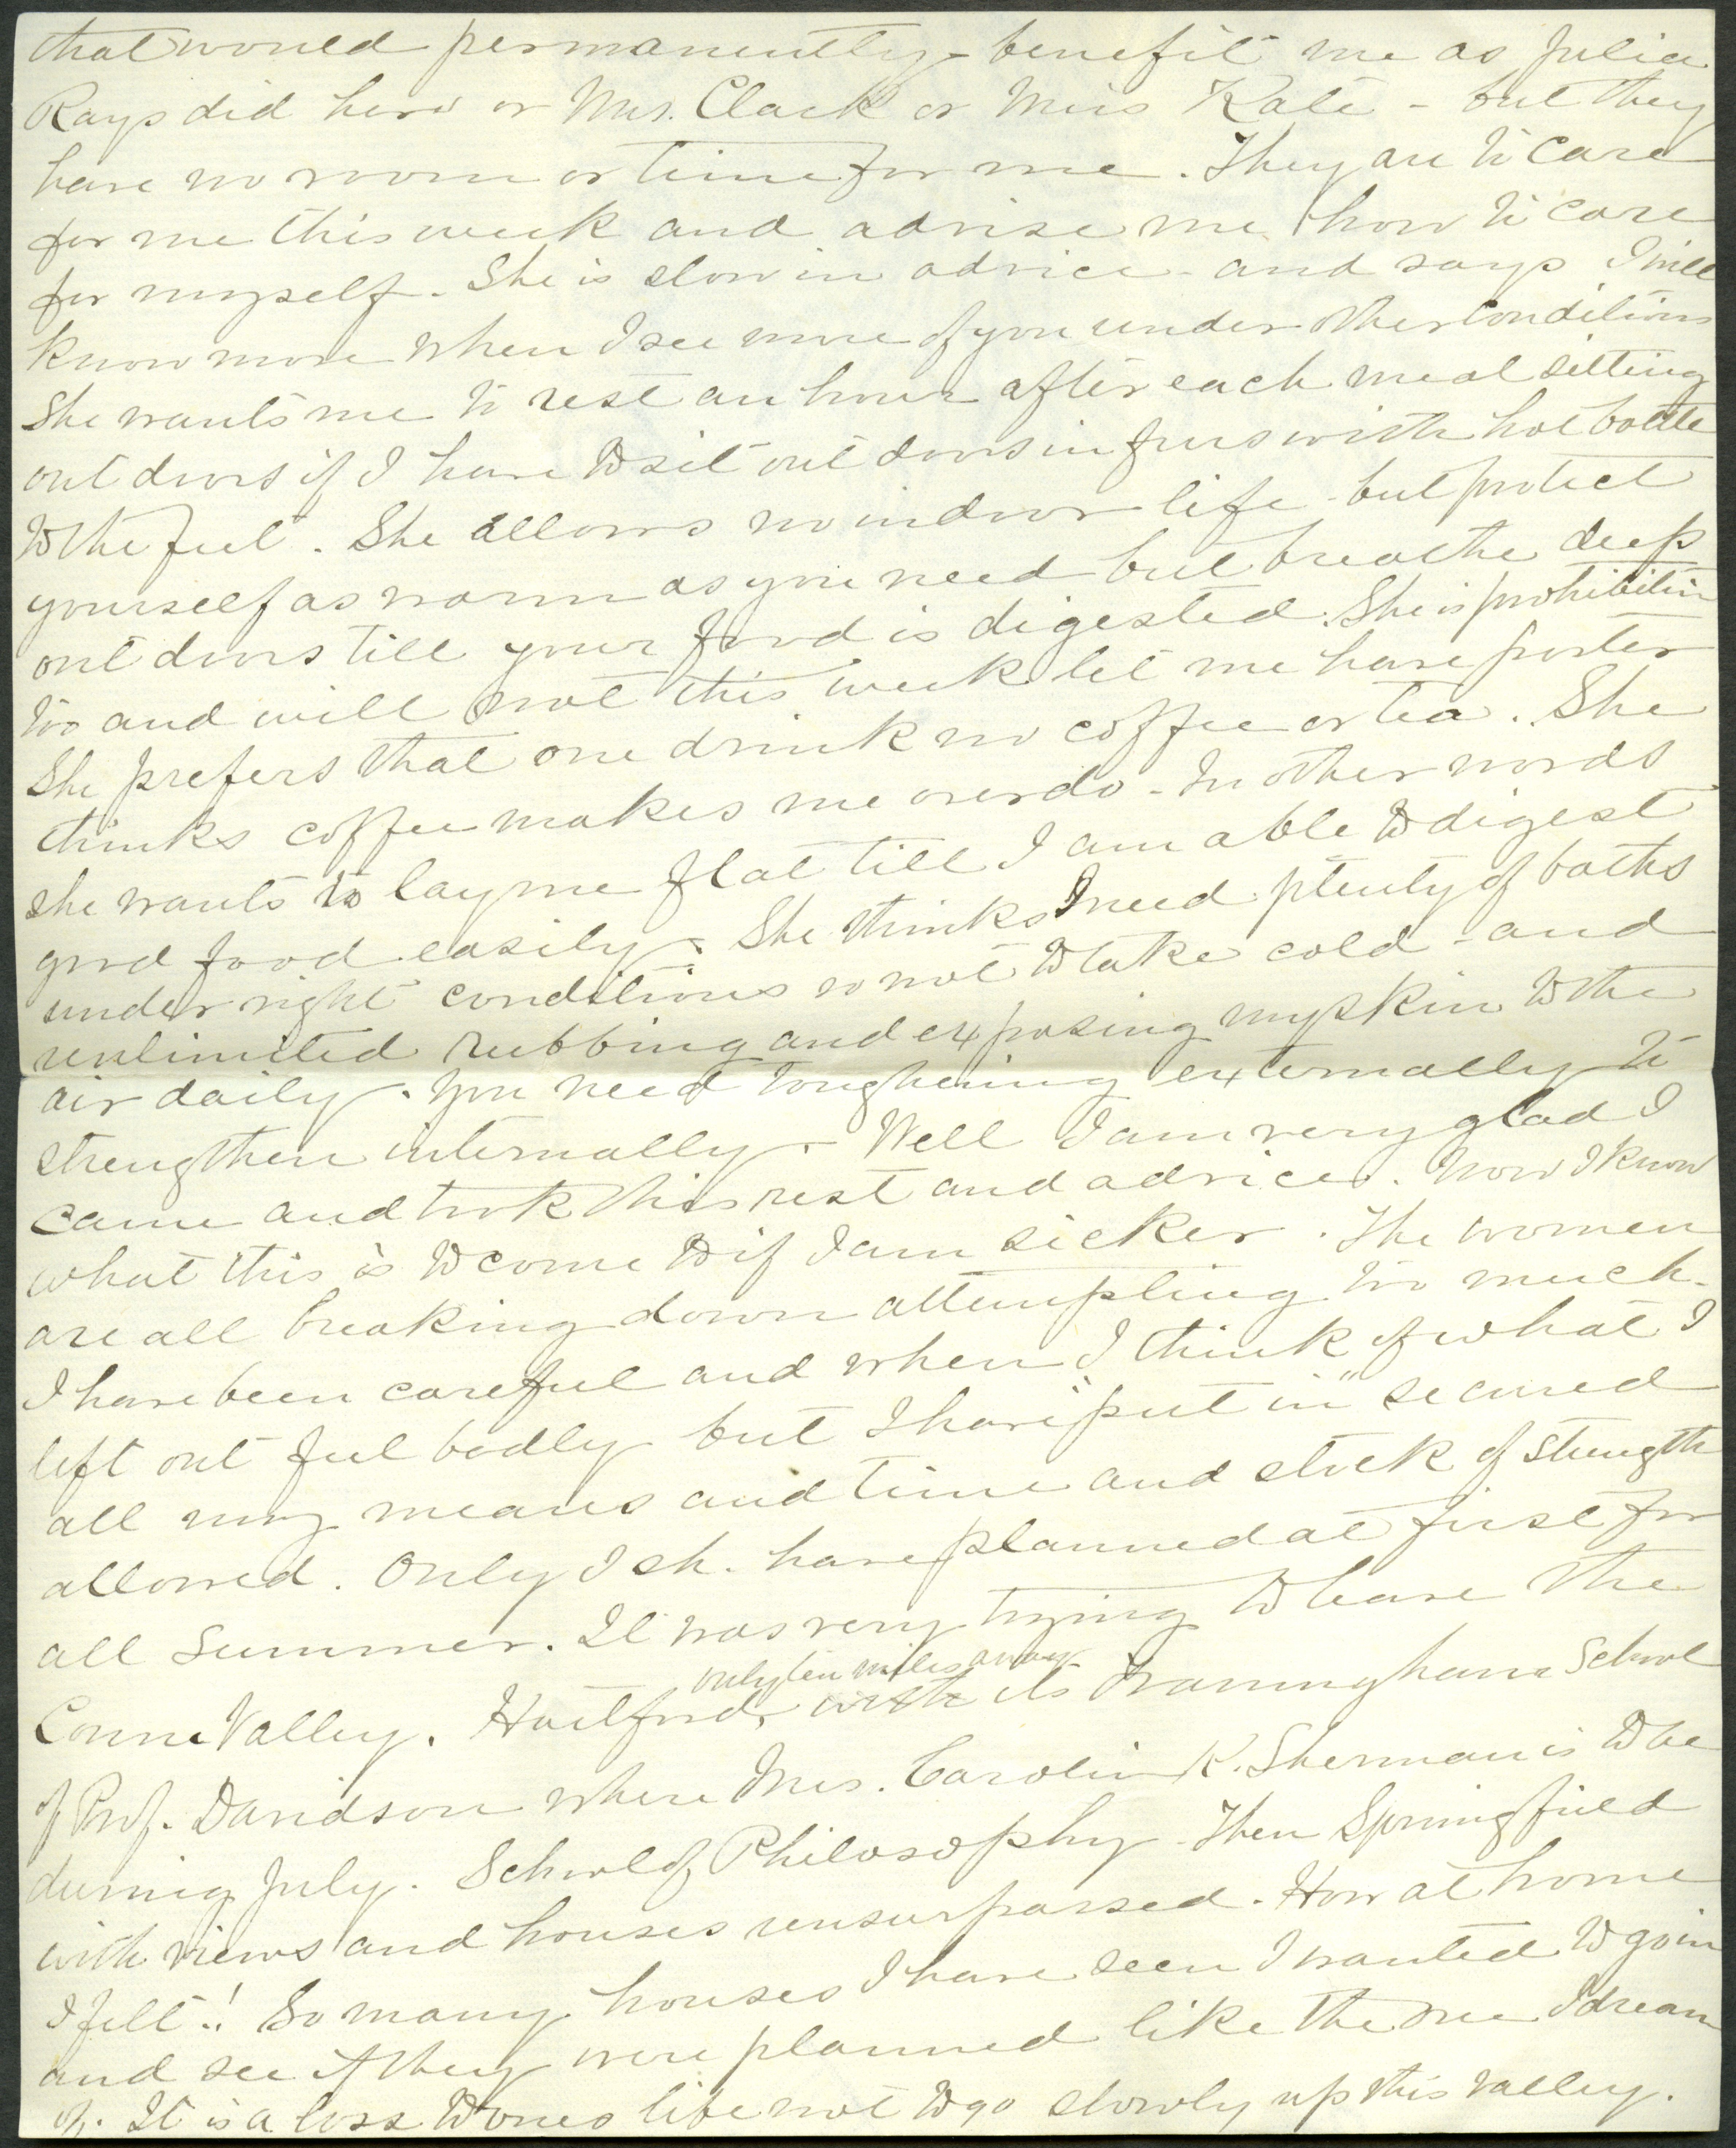 that would permanently benefit me as Julia
Rays did hers or Mrs. Clark or Miss Kate - but they
have no room or time for me. They are to care
for me this week and advise me how to care
for myself. She is slow in advice - and says I will
know more when I see more of you under other conditions
She wants me to rest an hour after each meal sitting
out doors if I have to sit out doors in furs with hot bottle
to the feet. She allows no indoor life - but protect
yourself as warm as you need but breathe deep
out doors till your food is digested. She is prohibition
too and will not this week let me have porter
She prefers that one drink no coffee or tea. She
thinks coffee makes me overdo - In other words
she wants to lay me flat till I am able to digest
good food easily. She thinks I need plenty of baths
under right conditions so not to take cold - and
unlimited rubbing and exposing my skin to the
air daily. You need toughening externally to
strengthen internally. - Well I am very glad I
came and took this rest and advice. Now I know
what this is to come to if I am sicker. The women
are all breaking down attempting too much.
I have been careful and when I think of what I
left out feel badly but I have "put in" secured
all my means and time and stock of strength
allowed. Only I sh. have planned at first for
all summer. It was very trying to leave the
Conn. Valley. Hartford, with its Framingham School
only ten miles away
of Prof. Davidson where Mrs. Carolin K. Sherman is to be
during July. School of Philosophy - Then Springfield
with views and houses unsurpassed. How at home
I felt! So many houses I have seen I wanted to go in
and see if they were planned like the one I dream
of. It is a loss to ones life not to go slowly up this valley.